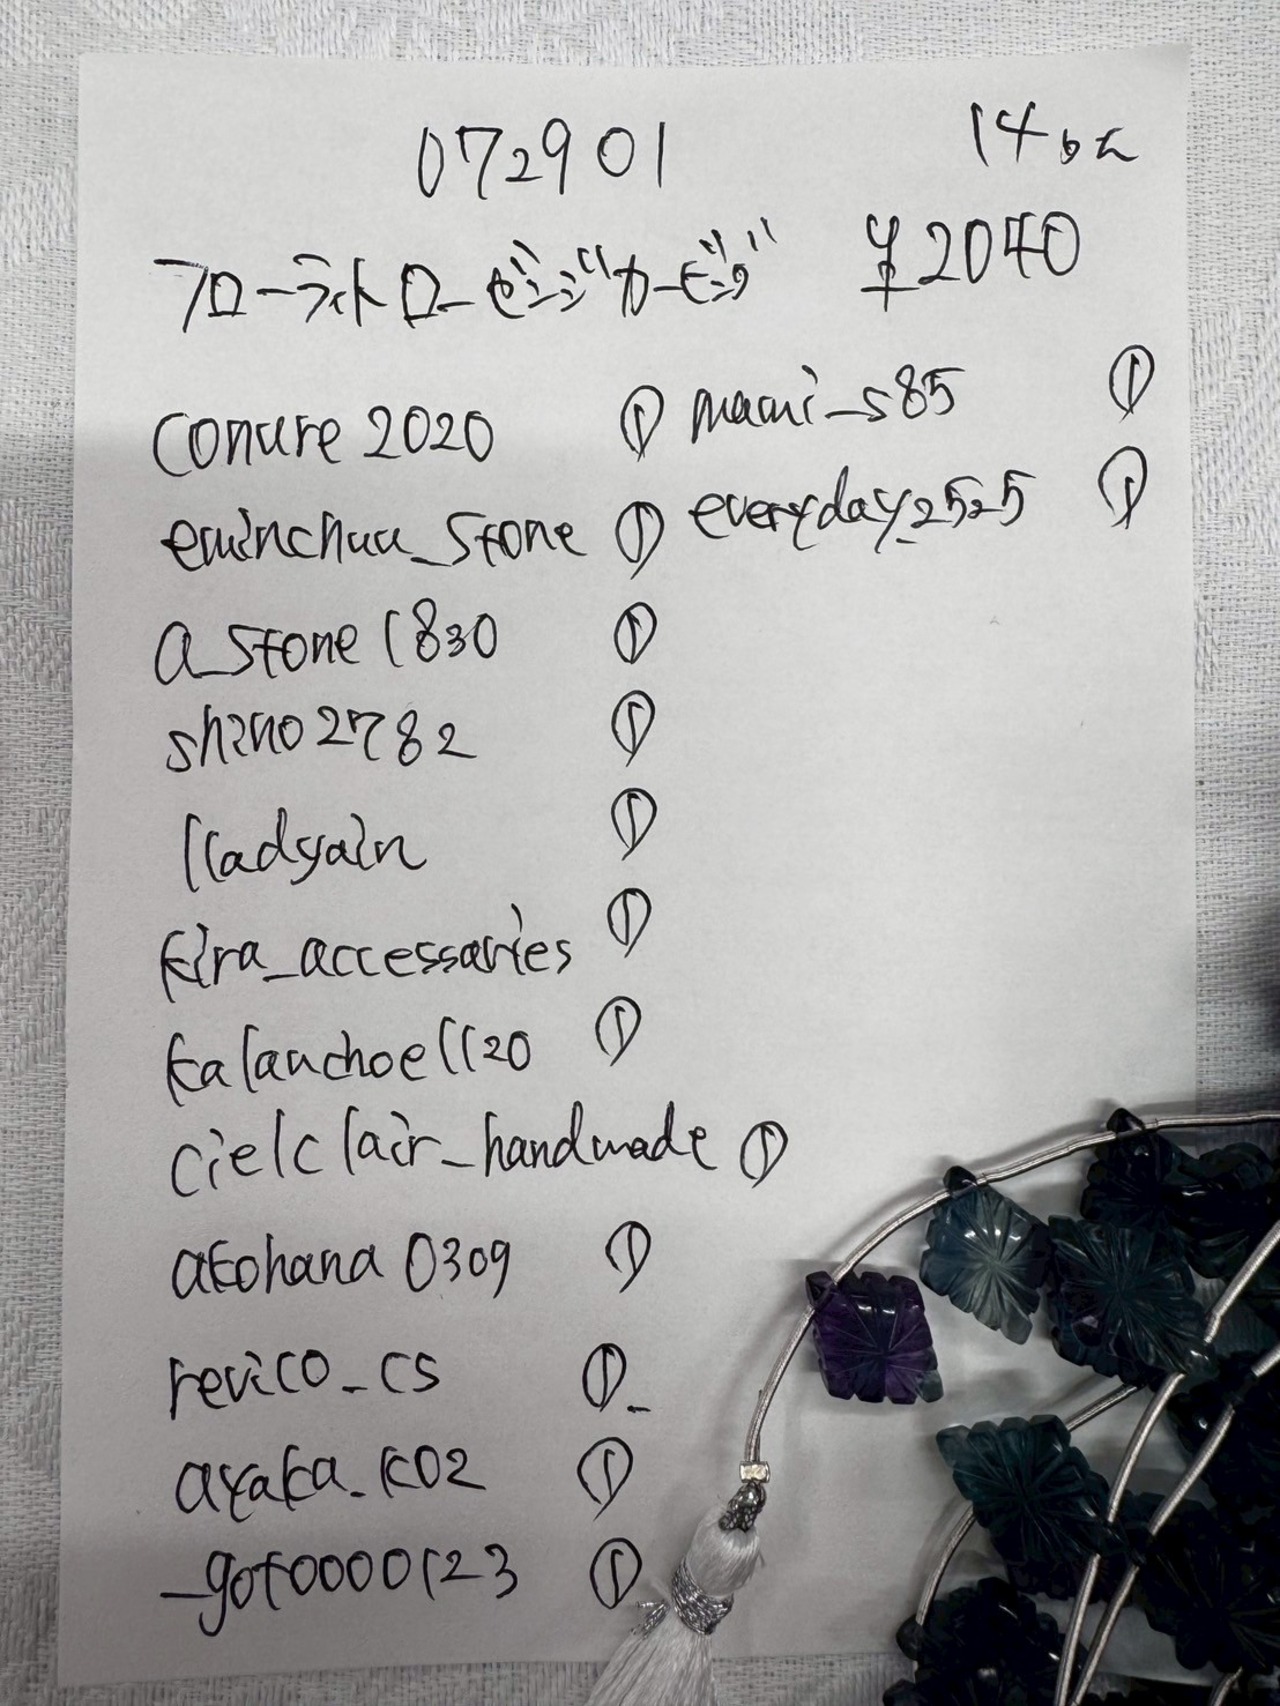 072901
14co
フローライトローゼンジカービング ¥2040
conure2020 ①
eminchuu_stone ①
a_stone1830 ①
shino2782 ①
lladyain ①
kira_accessaries ①
kalanchoe1120 ①
cielclair_handmade ①
akohana0309 ①
revico_cs ①
ayaka_k02 ①
_goto0000123 ①
mami_s85 ①
everyday_2525 ①